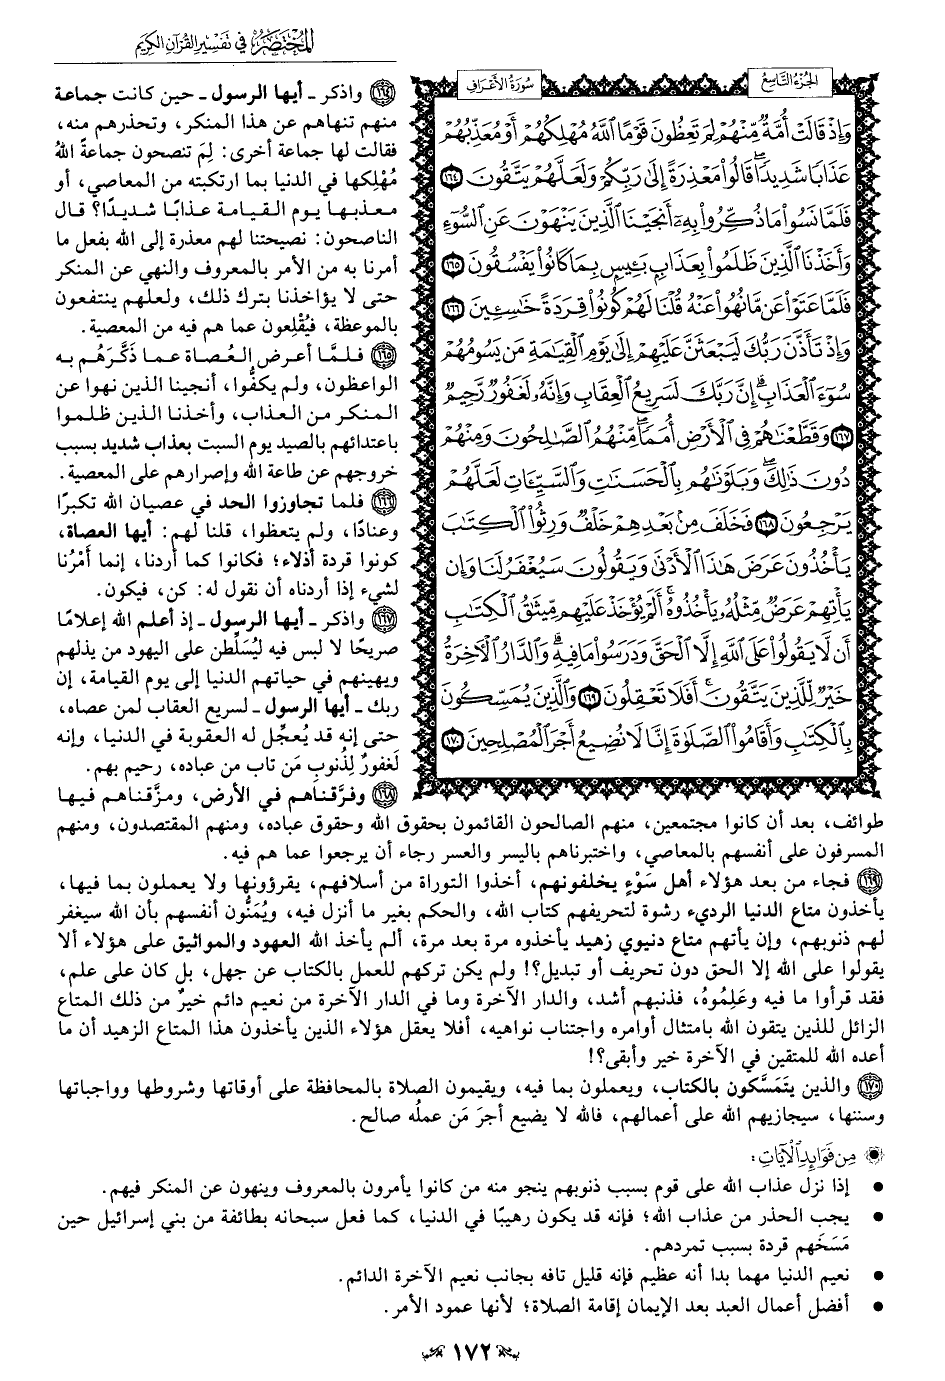 المختصر في تفسير القرآن الكريم
الجزء التاسع
سورة الأعراف
وَإِذْ قَالَتْ أُمَّةٌ مِّنْهُمْ لِمَ تَعِظُونَ قَوْمًا اللَّهُ مُهْلِكُهُمْ أَوْ مُعَذِّبُهُمْ
عَذَابًا شَدِيدًا ۖ قَالُوا مَعْذِرَةً إِلَىٰ رَبِّكُمْ وَلَعَلَّهُمْ يَتَّقُونَ ١٦٤
فَلَمَّا نَسُوا مَا ذُكِّرُوا بِهِ أَنجَيْنَا الَّذِينَ يَنْهَوْنَ عَنِ السُّوءِ
وَأَخَذْنَا الَّذِينَ ظَلَمُوا بِعَذَابٍ بَئِيسٍ بِمَا كَانُوا يَفْسُقُونَ ١٦٥
فَلَمَّا عَتَوْا عَن مَّا نُهُوا عَنْهُ قُلْنَا لَهُمْ كُونُوا قِرَدَةً خَاسِئِينَ ١٦٦
وَإِذْ تَأَذَّنَ رَبُّكَ لَيَبْعَثَنَّ عَلَيْهِمْ إِلَىٰ يَوْمِ الْقِيَامَةِ مَن يَسُومُهُمْ
سُوءَ الْعَذَابِ ۗ إِنَّ رَبَّكَ لَسَرِيعُ الْعِقَابِ وَإِنَّهُ لَغَفُورٌ رَّحِيمٌ
١٦٧ وَقَطَّعْنَاهُمْ فِي الْأَرْضِ أُمَمًا ۖ مِّنْهُمُ الصَّالِحُونَ وَمِنْهُمْ
دُونَ ذَٰلِكَ ۖ وَبَلَوْنَاهُم بِالْحَسَنَاتِ وَالسَّيِّئَاتِ لَعَلَّهُمْ
يَرْجِعُونَ ١٦٨ فَخَلَفَ مِن بَعْدِهِمْ خَلْفٌ وَرِثُوا الْكِتَابَ
يَأْخُذُونَ عَرَضَ هَٰذَا الْأَدْنَىٰ وَيَقُولُونَ سَيُغْفَرُ لَنَا وَإِن
يَأْتِهِمْ عَرَضٌ مِّثْلُهُ يَأْخُذُوهُ ۚ أَلَمْ يُؤْخَذْ عَلَيْهِم مِّيثَاقُ الْكِتَابِ
أَن لَّا يَقُولُوا عَلَى اللَّهِ إِلَّا الْحَقَّ وَدَرَسُوا مَا فِيهِ ۗ وَالدَّارُ الْآخِرَةُ
خَيْرٌ لِّلَّذِينَ يَتَّقُونَ ۗ أَفَلَا تَعْقِلُونَ ١٦٩ وَالَّذِينَ يُمَسِّكُونَ
بِالْكِتَابِ وَأَقَامُوا الصَّلَاةَ إِنَّا لَا نُضِيعُ أَجْرَ الْمُصْلِحِينَ ١٧٠
١٦٤ واذكر - أيها الرسول - حين كانت جماعة
منهم تنهاهم عن هذا المنكر، وتحذرهم منه،
فقالت لها جماعة أخرى: لِمَ تنصحون جماعةً اللهُ
مُهْلِكها في الدنيا بما ارتكبته من المعاصي، أو
معذبها يوم القيامة عذابًا شديدًا؟ قال
الناصحون: نصيحتنا لهم معذرة إلى الله بفعل ما
أمرنا به من الأمر بالمعروف والنهي عن المنكر
حتى لا يؤاخذنا بترك ذلك، ولعلهم ينتفعون
بالموعظة، فيُقْلِعون عما هم فيه من المعصية.
١٦٥ فلمَّا أعرض العُصاة عما ذَكَّرَهُم به
الواعظون، ولم يكفُّوا، أنجينا الذين نهوا عن
المنكر من العذاب، وأخذنا الذين ظلموا
باعتدائهم بالصيد يوم السبت بعذاب شديد بسبب
خروجهم عن طاعة الله وإصرارهم على المعصية.
١٦٦ فلما تجاوزوا الحد في عصيان الله تكبرًا
وعنادًا، ولم يتعظوا، قلنا لهم: أيها العصاة،
كونوا قردة أذلاء؛ فكانوا كما أردنا، إنما أَمْرُنا
لشيء إذا أردناه أن نقول له: كن، فيكون.
١٦٧ واذكر - أيها الرسول - إذ أعلم الله إعلامًا
صريحًا لا لبس فيه ليُسَلِّطن على اليهود من يذلهم
ويهينهم في حياتهم الدنيا إلى يوم القيامة، إن
ربك - أيها الرسول - لسريع العقاب لمن عصاه،
حتى إنه قد يُعجِّل له العقوبة في الدنيا، وإنه
لَغفورٌ لِذُنوبِ مَن تاب من عباده، رحيم بهم.
١٦٨ وفرَّقناهم في الأرض، ومزَّقناهم فيها
طوائف، بعد أن كانوا مجتمعين، منهم الصالحون القائمون بحقوق الله وحقوق عباده، ومنهم المقتصدون، ومنهم
المسرفون على أنفسهم بالمعاصي، واختبرناهم باليسر والعسر رجاء أن يرجعوا عما هم فيه.
١٦٩ فجاء من بعد هؤلاء أهل سَوْءٍ يخلفونهم، أخذوا التوراة من أسلافهم، يقرؤونها ولا يعملون بما فيها،
يأخذون متاع الدنيا الرديء رشوة لتحريفهم كتاب الله، والحكم بغير ما أنزل فيه، ويُمَنُّون أنفسهم بأن الله سيغفر
لهم ذنوبهم، وإن يأتهم متاع دنيوي زهيد يأخذوه مرة بعد مرة، ألم يأخذ الله العهود والمواثيق على هؤلاء ألا
يقولوا على الله إلا الحق دون تحريف أو تبديل؟! ولم يكن تركهم للعمل بالكتاب عن جهل، بل كان على علم،
فقد قرأوا ما فيه وعَلِمُوهُ، فذنبهم أشد، والدار الآخرة وما في الدار الآخرة من نعيم دائم خيرٌ من ذلك المتاع
الزائل للذين يتقون الله بامتثال أوامره واجتناب نواهيه، أفلا يعقل هؤلاء الذين يأخذون هذا المتاع الزهيد أن ما
أعده الله للمتقين في الآخرة خير وأبقى؟!
١٧٠ والذين يتمَسَّكون بالكتاب، ويعملون بما فيه، ويقيمون الصلاة بالمحافظة على أوقاتها وشروطها وواجباتها
وسننها، سيجازيهم الله على أعمالهم، فالله لا يضيع أجرَ مَن عملُه صالح.
من فوائد الآيات:
• إذا نزل عذاب الله على قوم بسبب ذنوبهم ينجو منه من كانوا يأمرون بالمعروف وينهون عن المنكر فيهم.
• يجب الحذر من عذاب الله؛ فإنه قد يكون رهيبًا في الدنيا، كما فعل سبحانه بطائفة من بني إسرائيل حين
مَسَخَهم قردة بسبب تمردهم.
• نعيم الدنيا مهما بدا أنه عظيم فإنه قليل تافه بجانب نعيم الآخرة الدائم.
• أفضل أعمال العبد بعد الإيمان إقامة الصلاة؛ لأنها عمود الأمر.
١٧٢